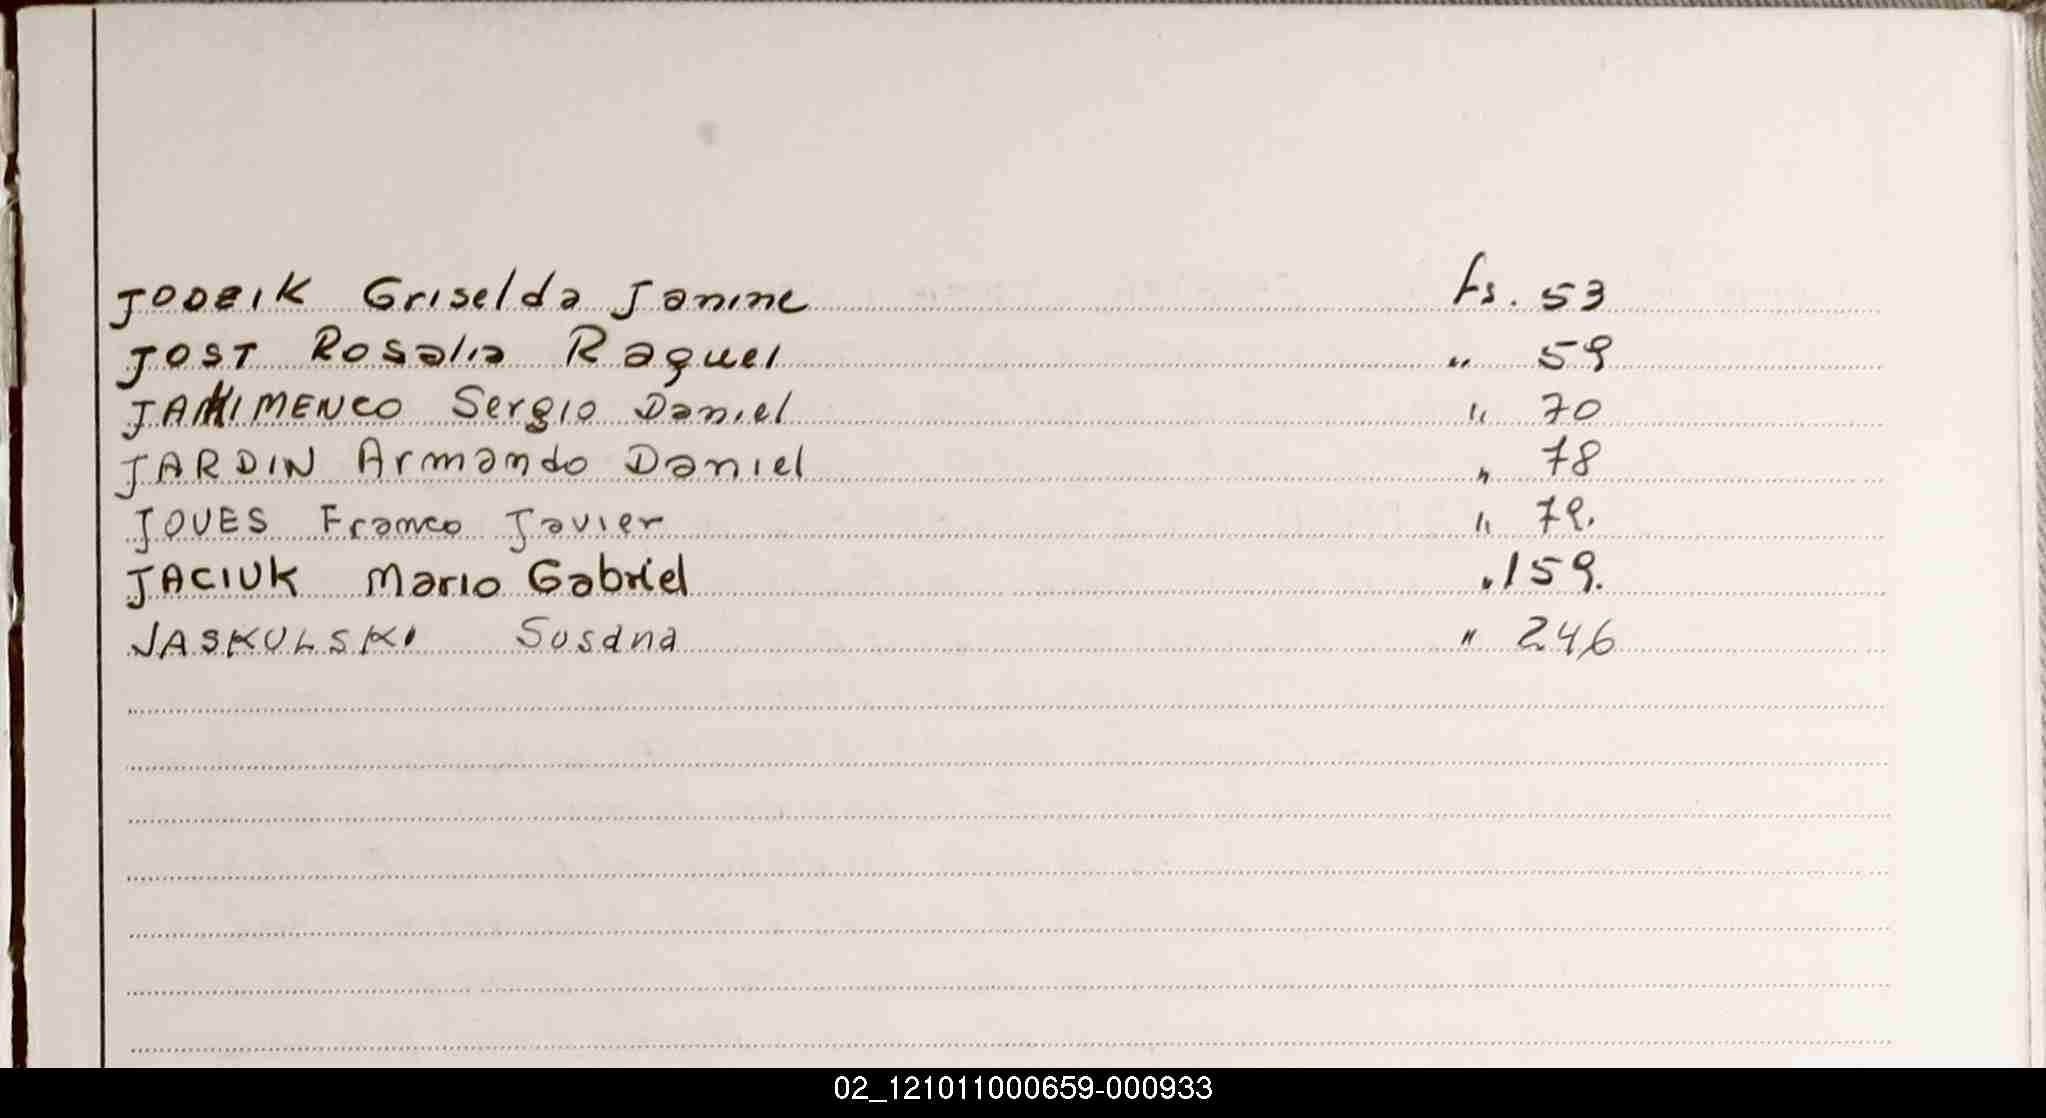 JODZIK Griselda Janine fs. 53
JOST Rosalia Raquel " 59
Sergio Daniel " 70
JARDIN Armando Daniel " 78
JOVES Franco Javier " 79.
JACIUK Mario Gabriel " 159.
JASKULSKI Susana " 246
02_121011000659-000933